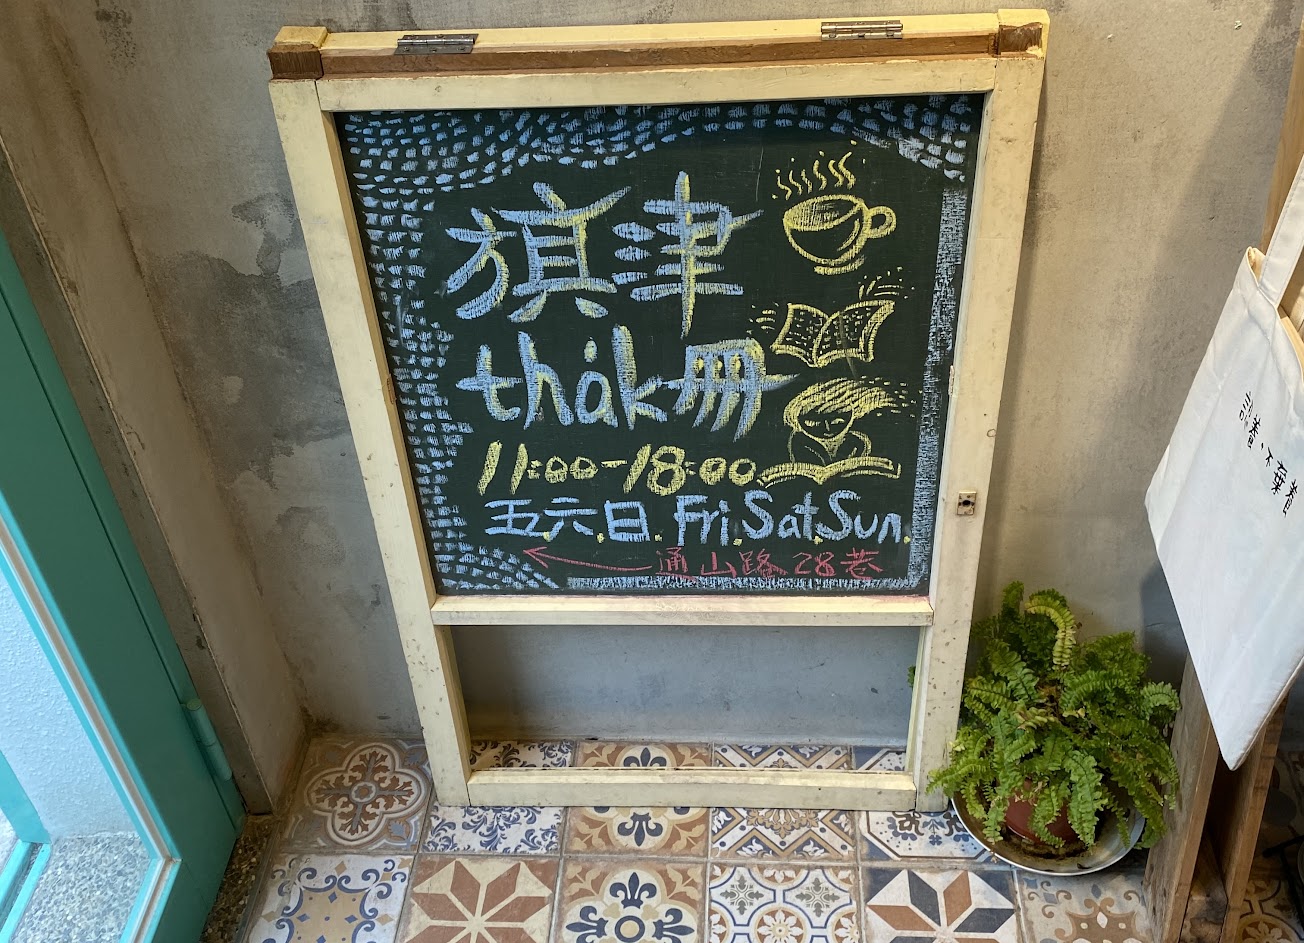 旗津
tha̍k冊
11:00-18:00
五.六.日. Fri.Sat.Sun.
通山路28巷